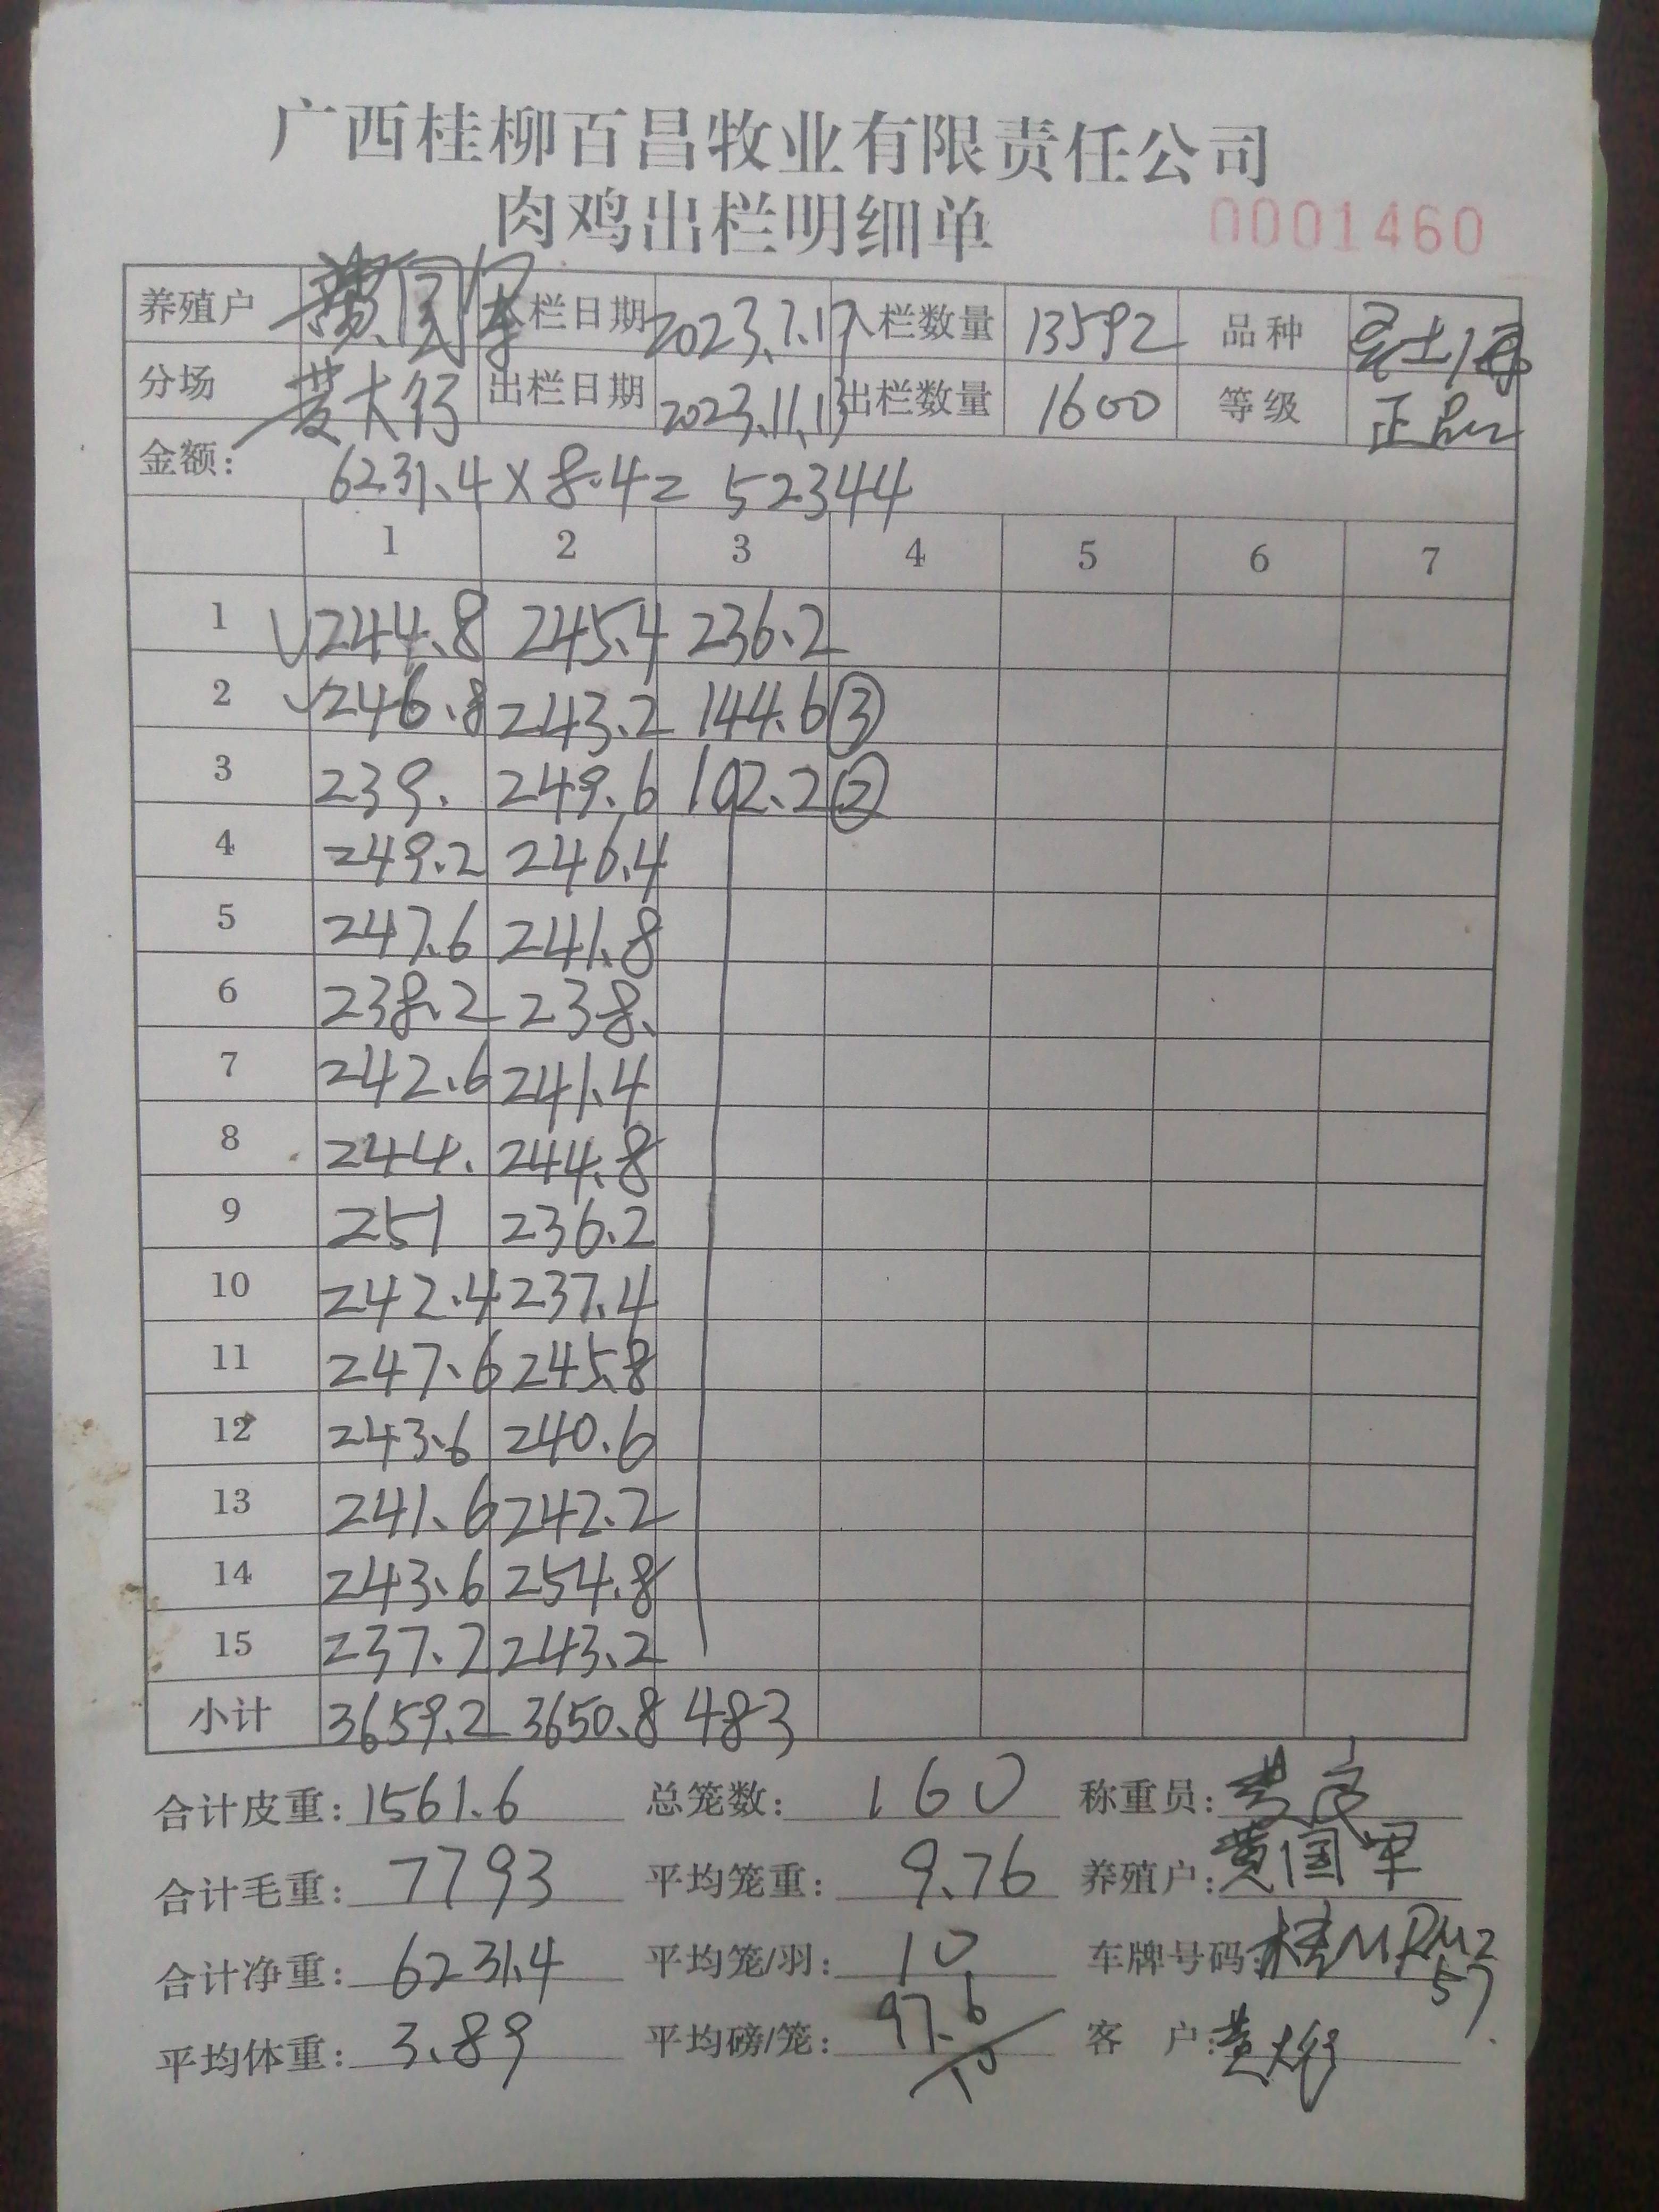 广西桂柳百昌牧业有限责任公司
肉鸡出栏明细单 0001460
养殖户 黄国军 入栏日期 2023.7.17 入栏数量 13592 品种
分场 出栏日期 2023.11.13 出栏数量 1600 等级 正品
金额: 6231.4×8.4= 52344
1 2 3 4 5 6 7
1 √244.8 245.4 236.2
2 √246.8 243.2 144.6 ③
3 239. 249.6 102.2 ②
4 249.2 246.4
5 247.6 241.8
6 238.2 238.
7 242.6 241.4
8 244. 244.8
9 251 236.2
10 242.4 237.4
11 247.6 245.8
12 243.6 240.6
13 241.6 242.2
14 243.6 254.8
15 237.2 243.2
小计 3659.2 3650.8 483
合计皮重: 1561.6 总笼数: 160 称重员:
合计毛重: 7793 平均笼重: 9.76 养殖户: 黄国军
合计净重: 6231.4 平均笼/羽: 10 车牌号码: 桂MRM257
平均体重: 3.89 平均磅/笼: 97.6/10 客户: